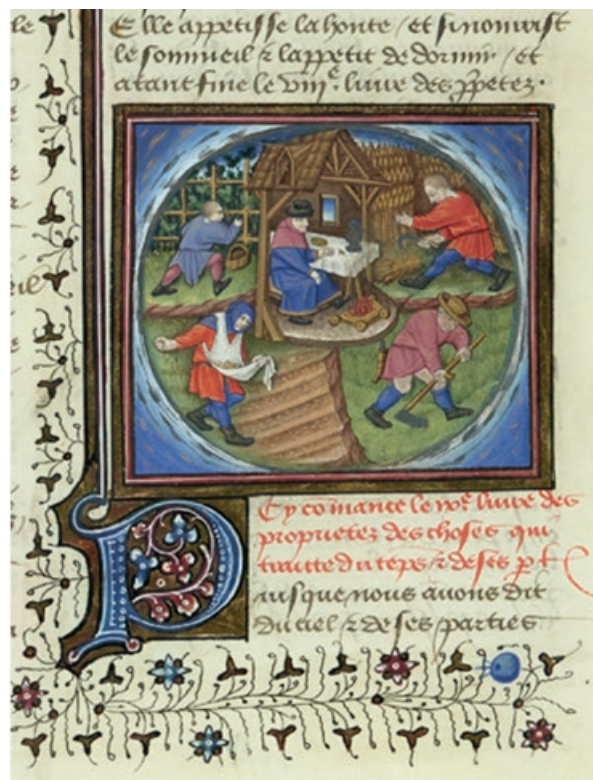 Elle appetisse la honte / et si nourrist
le sommeil ⁊ lappetit de dormir / et
atant fine le viii^e. liure des ꝓpetez.
Cy cōmance le ix^e liure des
proprietez des choses qui
traitte du tēps ⁊ de ses
Puisque nous auons dit
du ciel ⁊ de ses parties